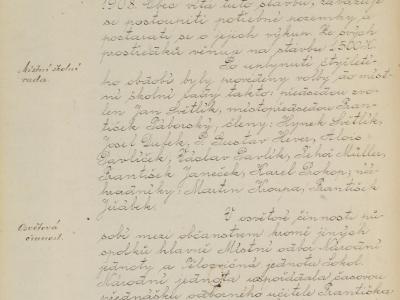 1908. Obec vítá tuto stavbu, zavazuje
se postoupiti potřebné pozemky a
postarati se o jejich výkup. Ze svých
prostředků věnuje na stavbu 2500 K.
Místní školní
rada.
Po uplynutí čtyřleté-
ho období byly provedeny volby do míst-
ní školní rady takto: předsedou zvo-
len Jan Světlík, místopředsedou Fran-
tišek Táborský, členy: Hynek Světlík,
Josef Dufek, P. Gustav Hever, Alois
Pavlíček, Václav Pavlík, Řehoř Müller,
František Janeček, Karel Prokop; ná-
hradníky: Martin Koupa, František
Jeřábek.
Osvětová
činnost.
V osvětové činnosti pů-
sobí mezi občanstvem kromě jiných
spolků hlavně Místní odbor Národní
jednoty a Tělocvičná jednota Sokol.
Národní jednota uspořádala časovou
přednášku odborného učitele Františka